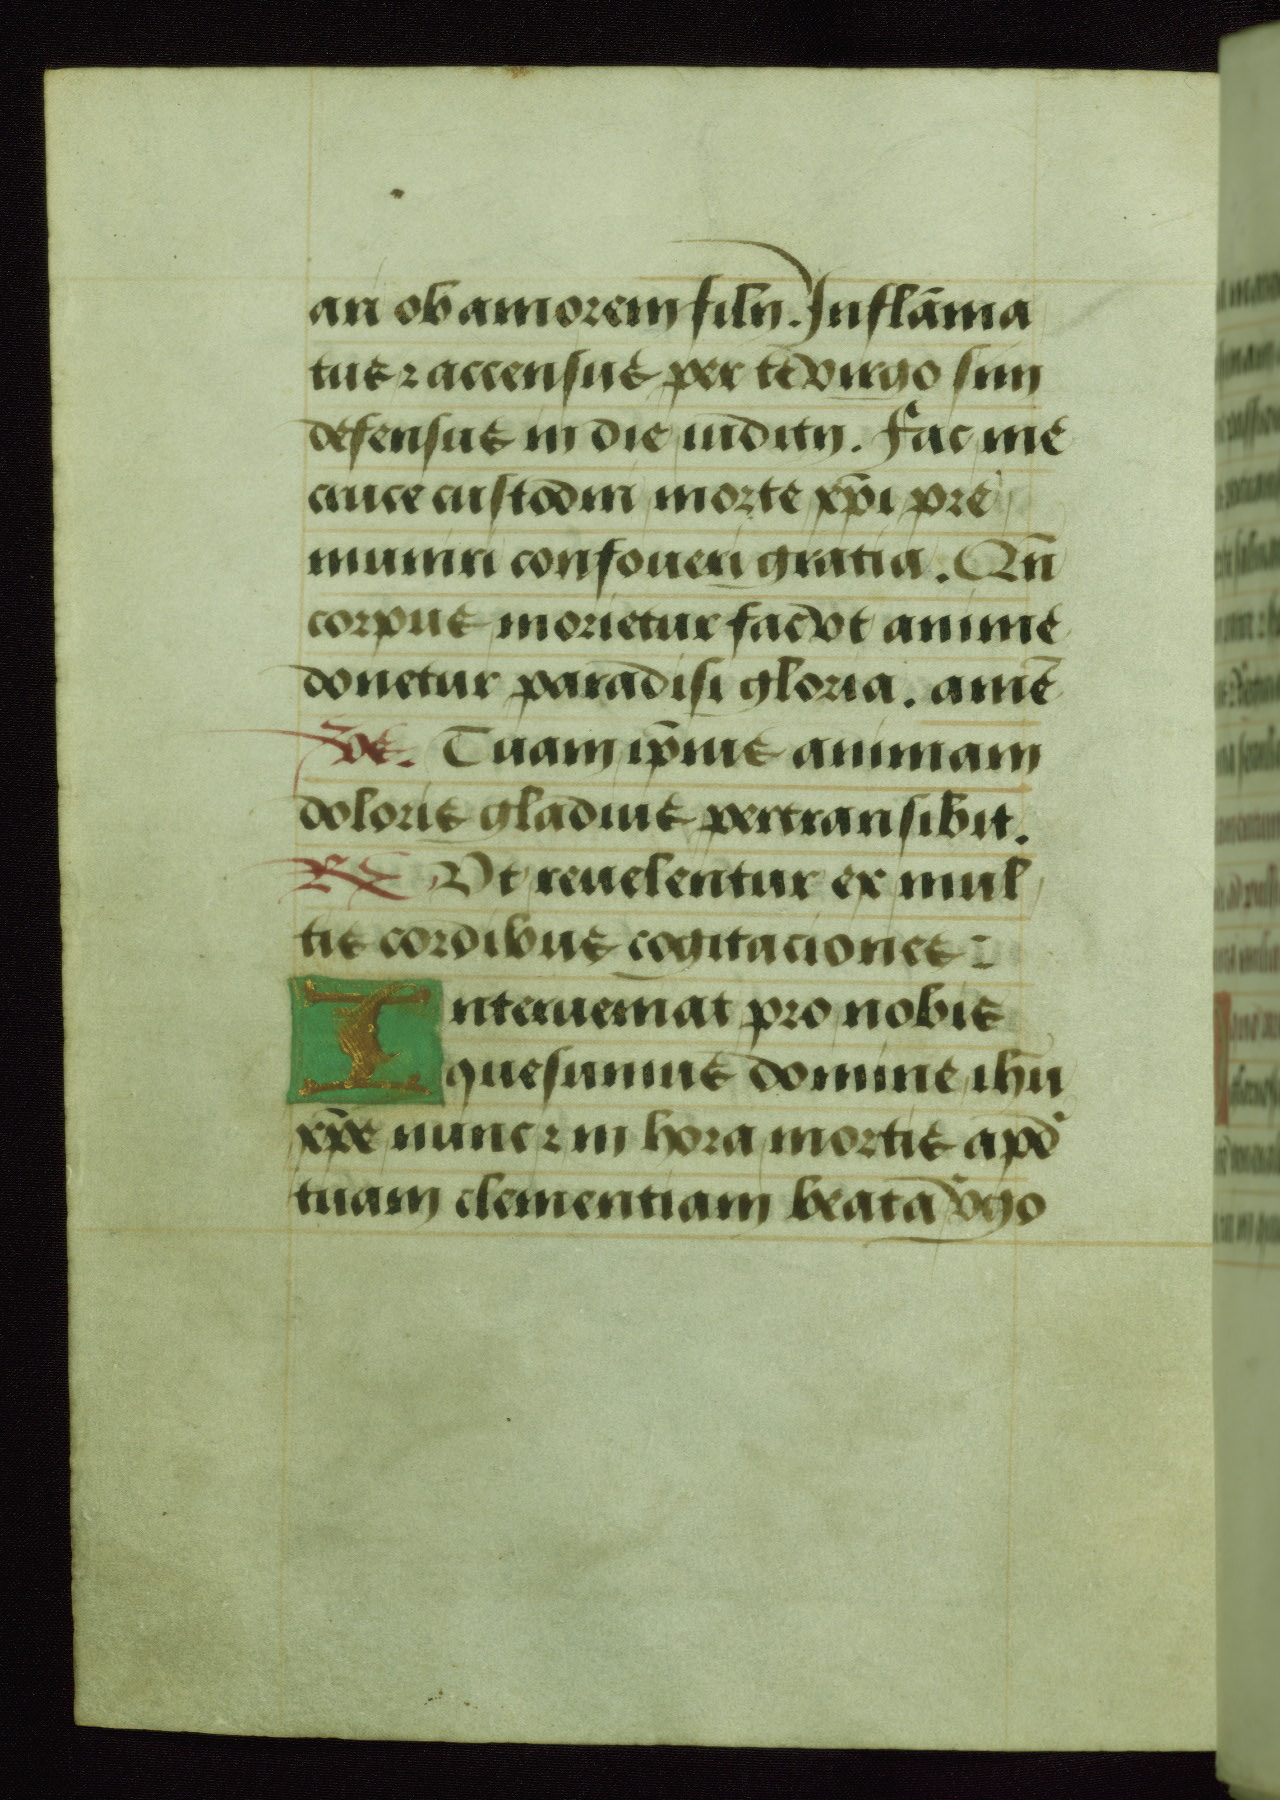 ari ob amorem filij. Inflãma
tus ⁊ accensus per te virgo sim
defensus in die iudicij. Fac me
cruce custodiri morte xp̃i pre
muniri confoueri gratia. Qñ
corpus morietur fac vt anime
donetur paradisi gloria. amẽ
Tuam ip̃ius animam
doloris gladius pertransibit.
R̷ Vt reuelentur ex mul
tis cordibus cogitaciones
Interueniat pro nobis
quesumus domine ihũ
xp̃e nunc ⁊ in hora mortis apd̾
tuam clementiam beata v̾go